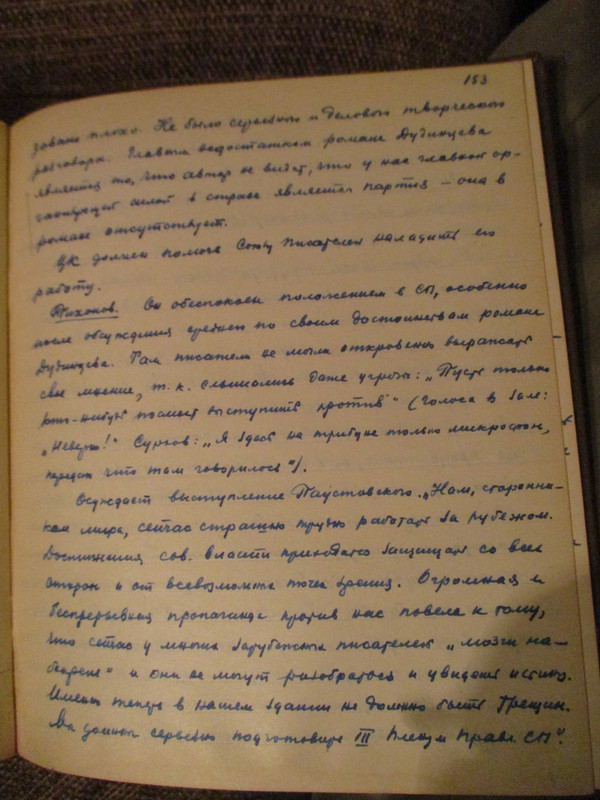 153
зовано плохо. Не было серьезного и делового творческого
разговора. Главным недостатком романа Дудинцева
является то, что автор не видит, что у нас главной ор-
ганизующей силой в стране является партия – она в
романе отсутствует.
ЦК должен помочь Союзу Писателей наладить его
работу.
Тихонов. Он обеспокоен положением в СП, особенно
после обсуждения среднего по своим достоинствам романа
Дудинцева. Там писатели не могли откровенно выражать
свое мнение, т. к. слышались даже угрозы: „Пусть только
кто-нибудь посмеет выступить против" (Голоса в зале:
„Неверно!" Сурков: „Я здесь на трибуне только микрофон,
передаю что там говорилось").
Осуждает выступление Паустовского. „Нам, сторонни-
кам мира, сейчас страшно трудно работать за рубежом.
Достижения сов. власти приходится защищать со всех
сторон и от всевозможных точек зрения. Огромная и
беспрерывная пропаганда против нас повела к тому,
что сейчас у многих зарубежных писателей „мозги на-
бекрень" и они не могут разобраться и увидеть истину.
Именно теперь в нашем здании не должно быть трещин.
Мы должны серьезно подготовить III Пленум Правл. СП".